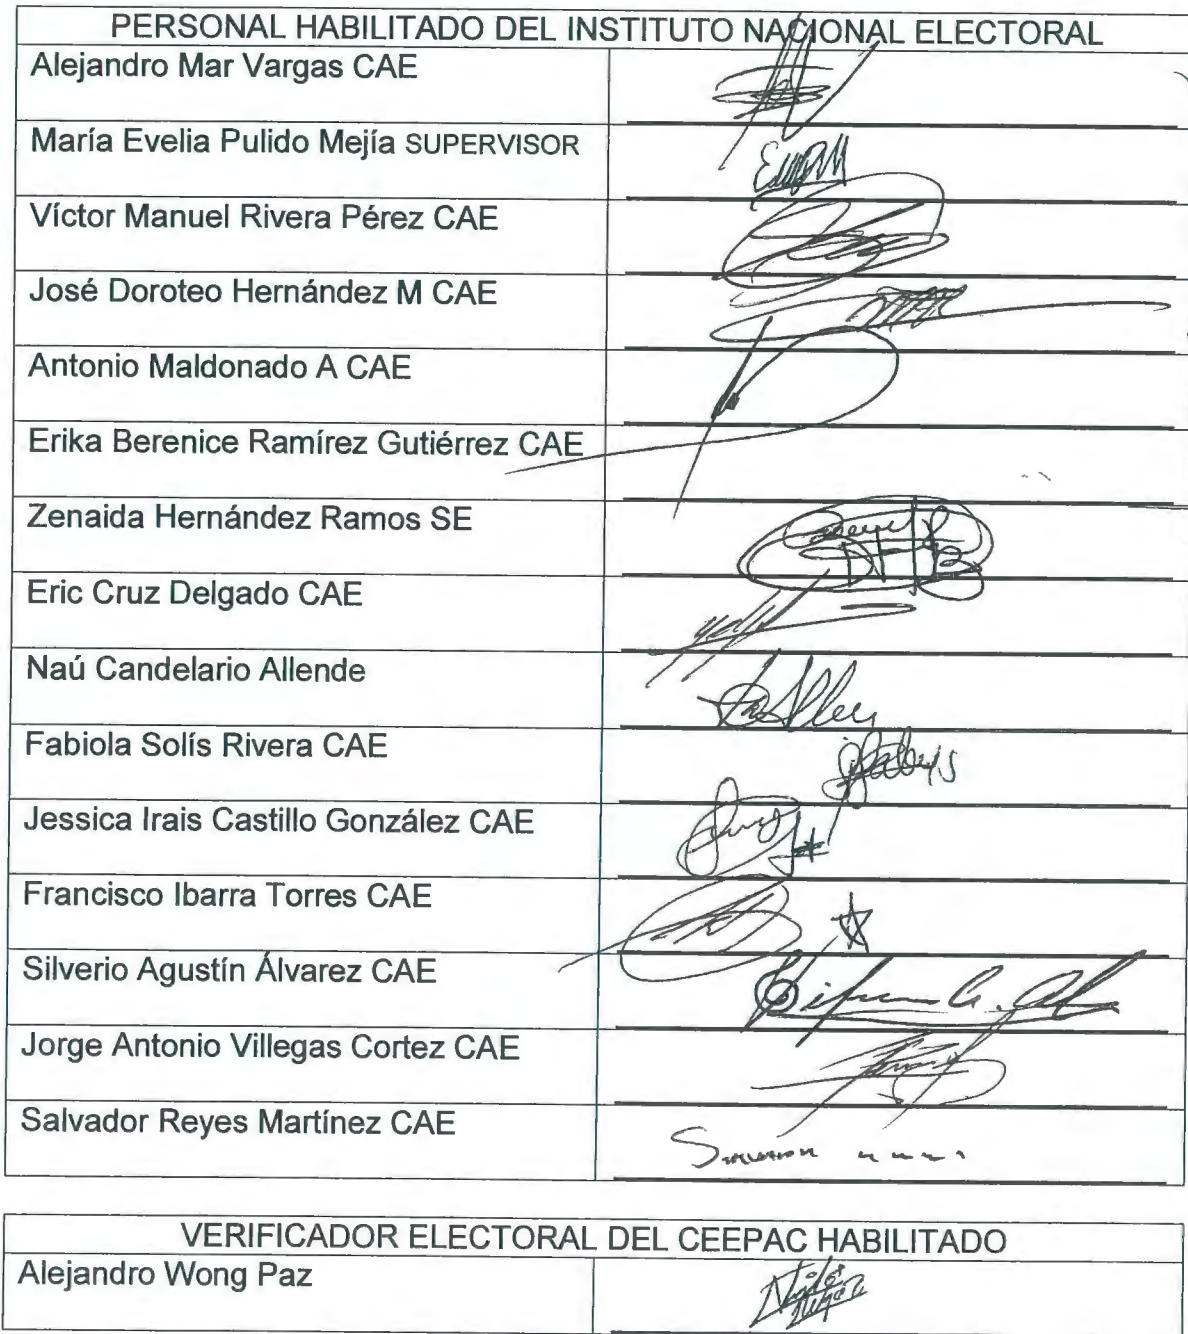 PERSONAL HABILITADO DEL INSTITUTO NACIONAL ELECTORAL
Alejandro Mar Vargas CAE
María Evelia Pulido Mejía SUPERVISOR
Víctor Manuel Rivera Pérez CAE
José Doroteo Hernández M CAE
Antonio Maldonado A CAE
Erika Berenice Ramírez Gutiérrez CAE
Zenaida Hernández Ramos SE
Eric Cruz Delgado CAE
Naú Candelario Allende
Fabiola Solís Rivera CAE
Jessica Irais Castillo González CAE
Francisco Ibarra Torres CAE
Silverio Agustín Álvarez CAE
Jorge Antonio Villegas Cortez CAE
Salvador Reyes Martínez CAE
VERIFICADOR ELECTORAL DEL CEEPAC HABILITADO
Alejandro Wong Paz